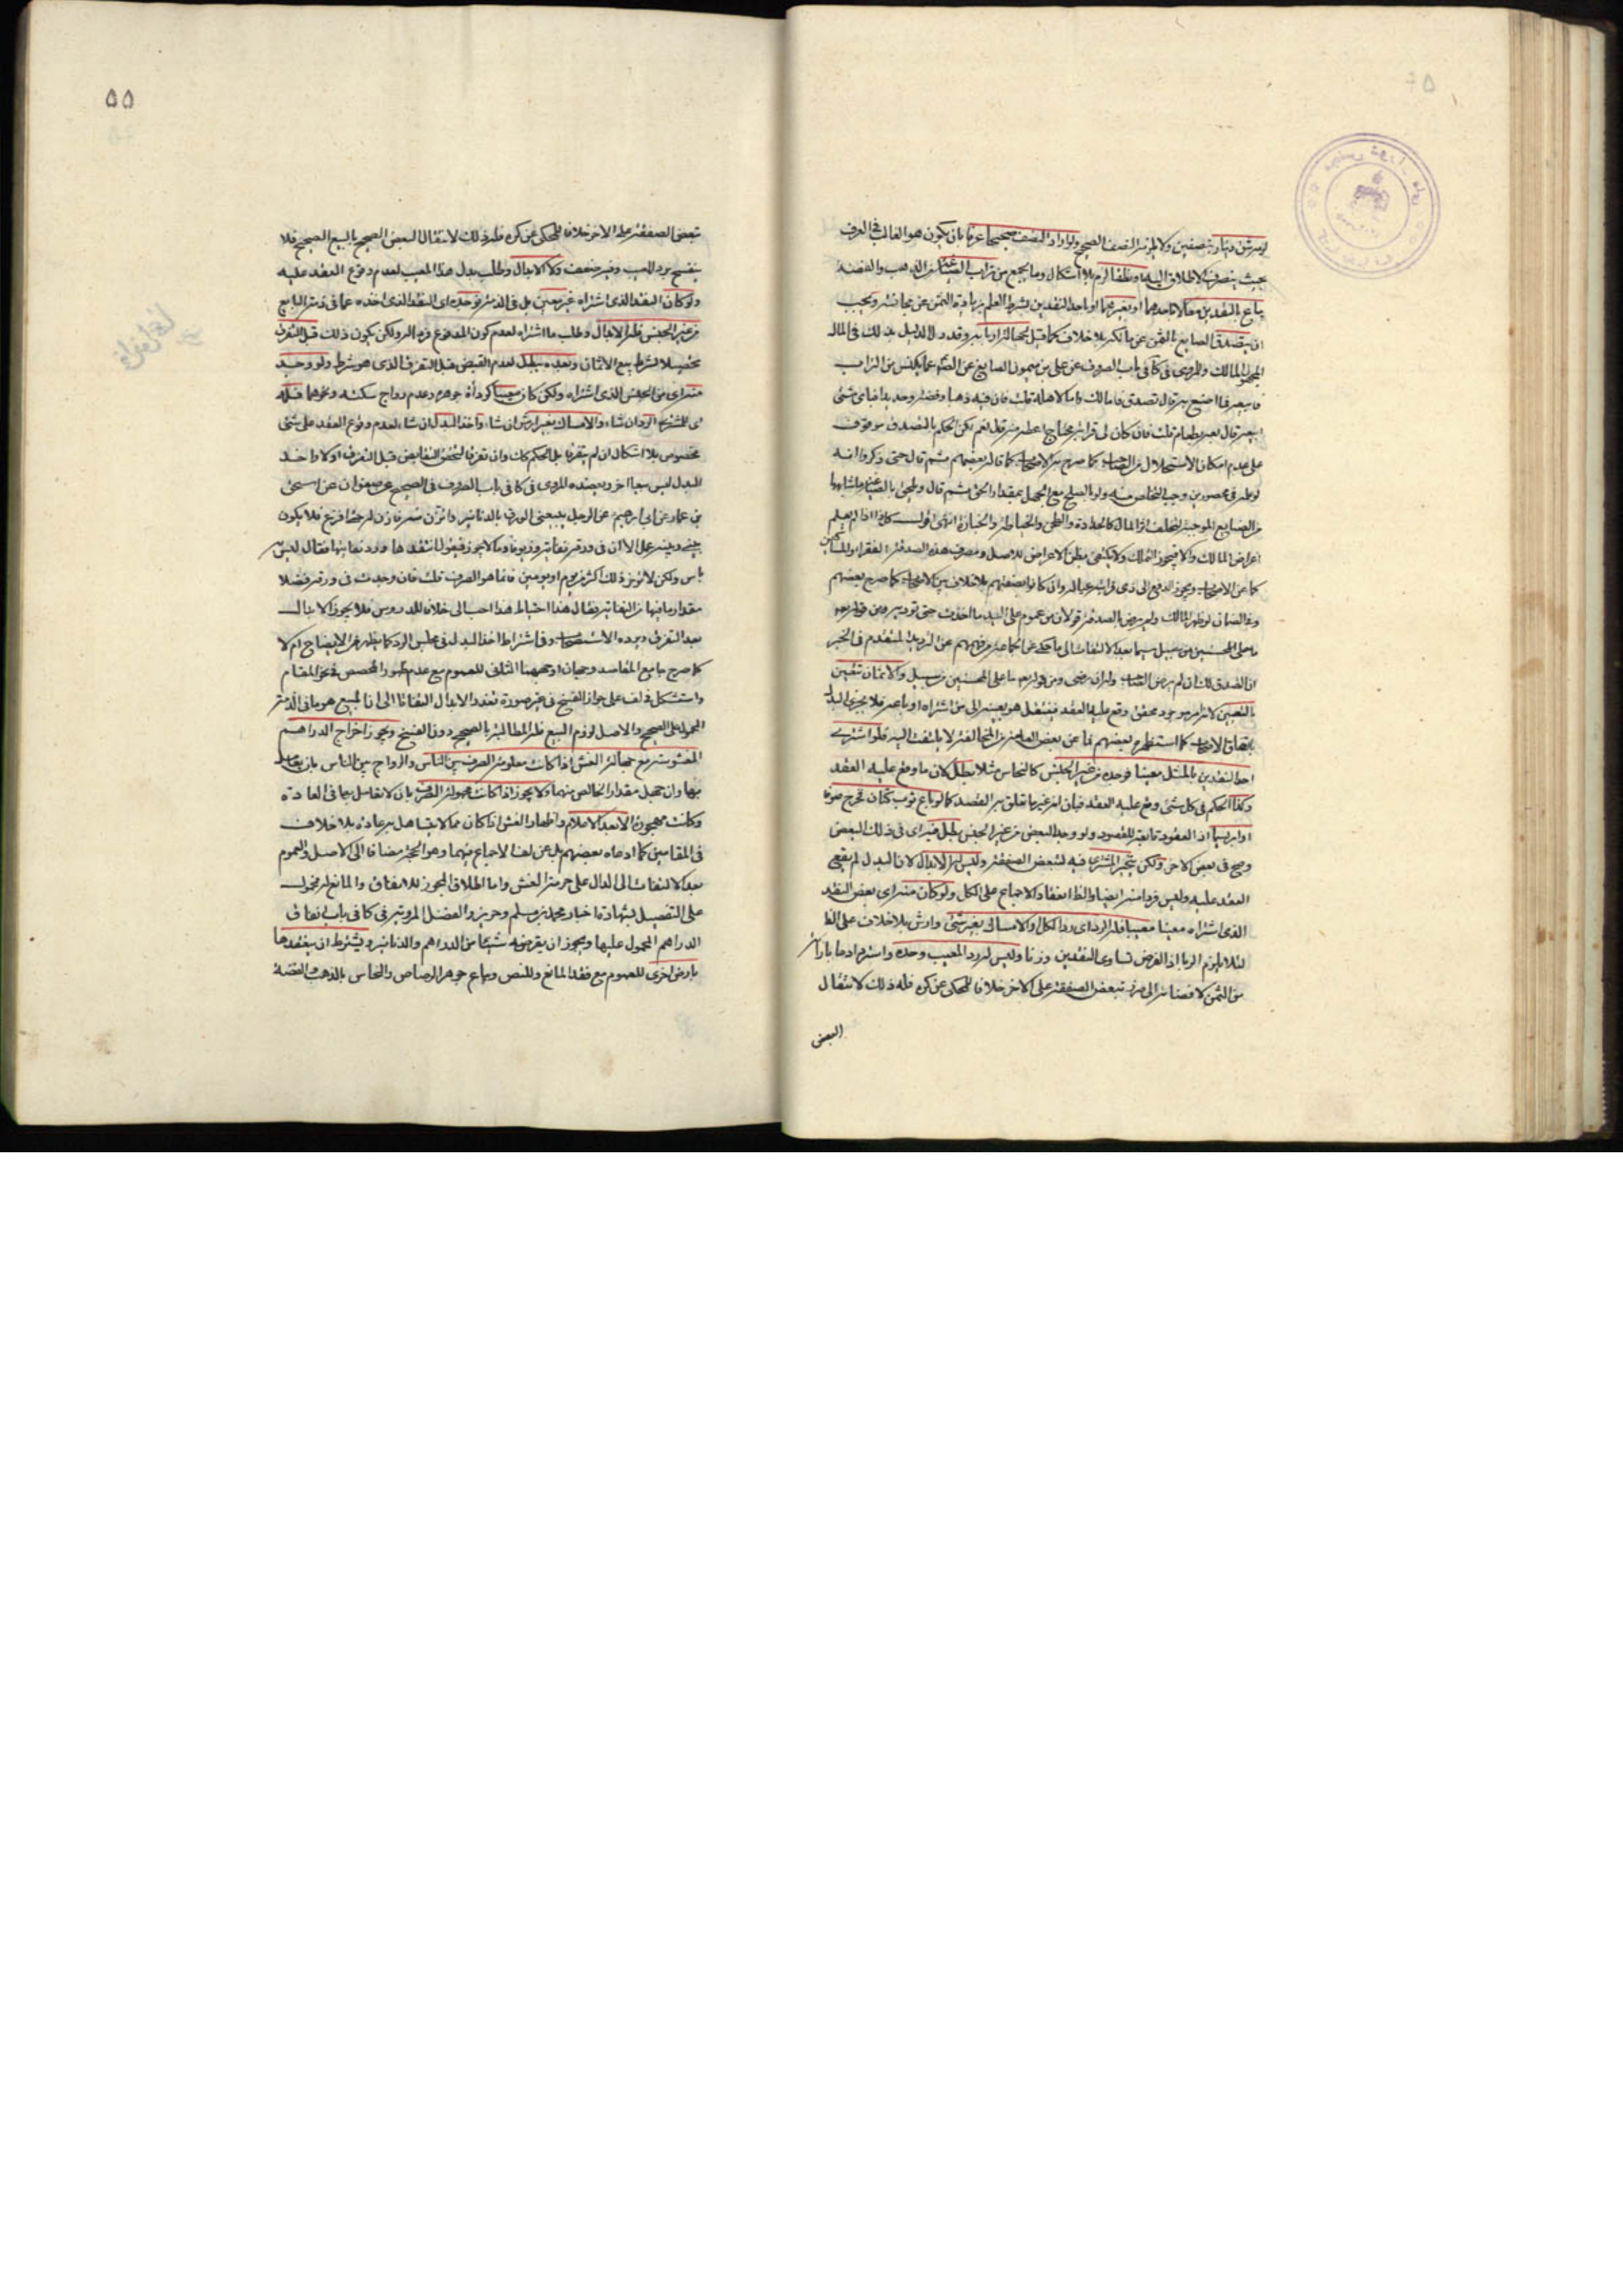 بحيث ينصرف الاطلاق اليه او نطقا لزم بلا اشكال وما يجمع من تراب الصياغة من الذهب والفضة
يباع بالنقدين معا لا باحدهما او بغيرهما او باحد النقدين بشرط العلم بزيادة الثمن عن مجانسه ويجب
ان يتصدق الصايغ بالثمن عن مالكه بلا خلاف كما قيل لجهالة اربابه وقد دل الدليل بذلك في المال
المجهول المالك والمروى فى كا فى باب الصروف عن على بن ميمون الصايغ عن الصم عما يكنس من التراب
فابيعه فما اصنع به قال تصدق به فاما لك واما لاهله قلت فان فيه ذهبا وفضة وحديدا فباى شئ
ابيعه قال بعه بطعام قلت فان كان لى قرابة محتاج اعطيه منه قال نعم لكن الحكم بالتصدق موقوف
على عدم امكان الاستحلال من كما صرح به الاصحاب كما قاله بعضهم ثم قال حتى ذكروا انه
لو علم فى محصورين وجب التخلص منه ولو بالصلح مع الجهل بمقدار الحق ثم قال ويلحق بالصياغة ما شابهها
من الصنايع الموجبة لتخلف اثر المال كالحدادة والطحن والخياطة والخبازة انتهى اقول كل ذا اذا لم يعلم
اعراض المالك والا فيجوز التملك ولا يكتفى بظن الاعراض للاصل ومصرف هذه الصدقة الفقراء والمساكين
كما عن الاصحاب ويجوز الدفع الى ذى قرابته وعياله وان كانوا بصفتهم بلا خلاف بين الاصحاب كما صرح بعضهم
وفى الضمان لو ظهر المالك ولم يرض بالصدقة قولان من عموم على اليد ما اخذت حتى تؤديه ومن قوله
ما على المحسنين من سبيل سيما بعد الالتفات الى ما حكى عن جماعة من فهمهم عن الترديد المتقدم فى الخبر
ان الصدق لك ان لم يرض الصاحب وله ان رضى ومن قوله ما على المحسنين من سبيل والاثمان تتعين
بالتعيين لانه امر موجود محقق وقع عليه العقد فينتقل هو بعينه الى من اشتراه او باعه فلا يجزى البدل
باتفاق الاصحاب كما استظهره بعضهم فما عن بعض العامة من المخالفة لا يلتفت اليه فلو اشترى
احد النقدين بالمثل معينا فوجده من غير الجنس كالنحاس مثلا بطل لان ما وقع عليه العقد
وكذا الحكم فى كل شئ وقع عليه العقد فبان انه غير ما تعلق به القصد كما لو باع ثوب كتان فخرج صوفا
او ابريسما اذ العقود تابعة للقصود ولو وجد البعض من غير الجنس بطل فيه اى فى ذلك البعض
وصح فى بعض الاخر ولكن يتخير المشترى فيه لتبعض الصفقة وليس له الابدال لان البدل لم يقع
العقد عليه وليس فردا منه ايضا والظ انعقاد الاجماع على الكل ولو كان منه اى بعض النقد
الذى اشتراه معينا معيبا فله الرد اى رد الكل او الامساك بغير شئ وارش بلا خلاف على الظ
لئلا يلزم الربا اذ الفرض تساوى النقدين وزنا وليس له رد المعيب وحده
من الثمن لافضائه الى ضرر تبعض الصفقة على الاخر خلافا للمحكى عن كره فله ذلك لانتقال
البعض
۵۵
تبعض الصفقة على الاخر خلافا للمحكى عن كره فله ذلك لانتقال البعض الصحيح بالبيع الصحيح فلا
ينفسخ برد المعيب وفيه ضعف ولا الابدال وطلب بدل هذا المعيب لعدم وقوع العقد عليه
ولو كان النقد الذى اشتراه غير معين بل فى الذمة فوجده اى النقد الذى اخذه عما فى ذمة البايع
من غير الجنس فله الابدال وطلب ما اشتراه لعدم كون المدفوع فردا له ولكن يكون ذلك قبل التفرق
تحصيلا لشرط بيع الاثمان وبعده يبطل لعدم القبض قبل التفرق الذى هو شرط ولو وجد
منه اى من الجنس الذى اشتراه ولكن كان معيبا كرداءة جوهره وعدم رواج سكته ونحوهما فله
اى للمشترى الرد ان شاء والامساك بغير ارش ان شاء واخذ البدل ان شاء لعدم وقوع العقد على شئ
مخصوص بلا اشكال ان لم يتفرقا بل الحكم كك وان تفرقا لتحقق التقابض قبل التفرق اولا واخذ
البدل ليس بيعا اخر ويعضده المروى فى كا فى باب الصروف فى الصحيح عن صفوان عن اسحق
بن عمار عن ابى ابرهيم عن الرجل يبيعنى الورق بالدنانير واتزن منه فازن له حتى افرغ فلا يكون
بينى وبينه عمل الا ان فى ورقه نفاية وزيوفا وما لا يجوز فيقول انتقدها ورد نفايتها فقال ليس به
باس ولكن لا تؤخر ذلك اكثر من يوم او يومين فانما هو الصرف قلت فان وجدت فى ورقه فضلا
مقدار ما فيها من النفاية فقال هذا احتياط هذا احب الى خلافا للدروس فلا يجوز الابدال
بعد التفرق ويرده الاستصحاب وفى اشتراط اخذ البدل فى مجلس الرد كما يظهر من الايضاح ام لا
كما صرح جامع المقاصد وجهان اوجههما الثانى للعموم مع عدم ظهور المخصص فى نحو المقام
المحمول على الصحيح والاصل لزوم البيع فله المطالبة بالصحيح دون الفسخ ويجوز اخراج الدراهم
المغشوشة مع جهالة الغش اذا كانت معلومة الصرف بين الناس والرواج بين الناس بان يتعامل
بها وان جهل مقدار الخالص منها ولا يجوز اذا كانت مجهولة الصرف بان لا يتعامل بها فى العادة
وكانت مهجورة الا بعد الاعلام واظهار الغش اذا كان مما لا يتساهل به عادة بلا خلاف
فى المقامين كما ادعاه بعضهم بل عن لف الاجماع فيهما وهو الحجة مضافا الى الاصل والعموم
بعد الالتفات الى الدال على حرمة الغش واما اطلاق المجوز للانفاق والمانع له فمحمول
على التفصيل بشهادة اخبار محمد بن مسلم وحريز والفضل المروية فى كا فى باب انفاق
الدراهم المحمول عليها ويجوز ان يقرضه شيئا من الدراهم والدنانير ويشترط ان ينقدها
بارض اخرى للعموم مع فقد المانع وللنص ويباع جوهر الرصاص والنحاس بالذهب والفضة